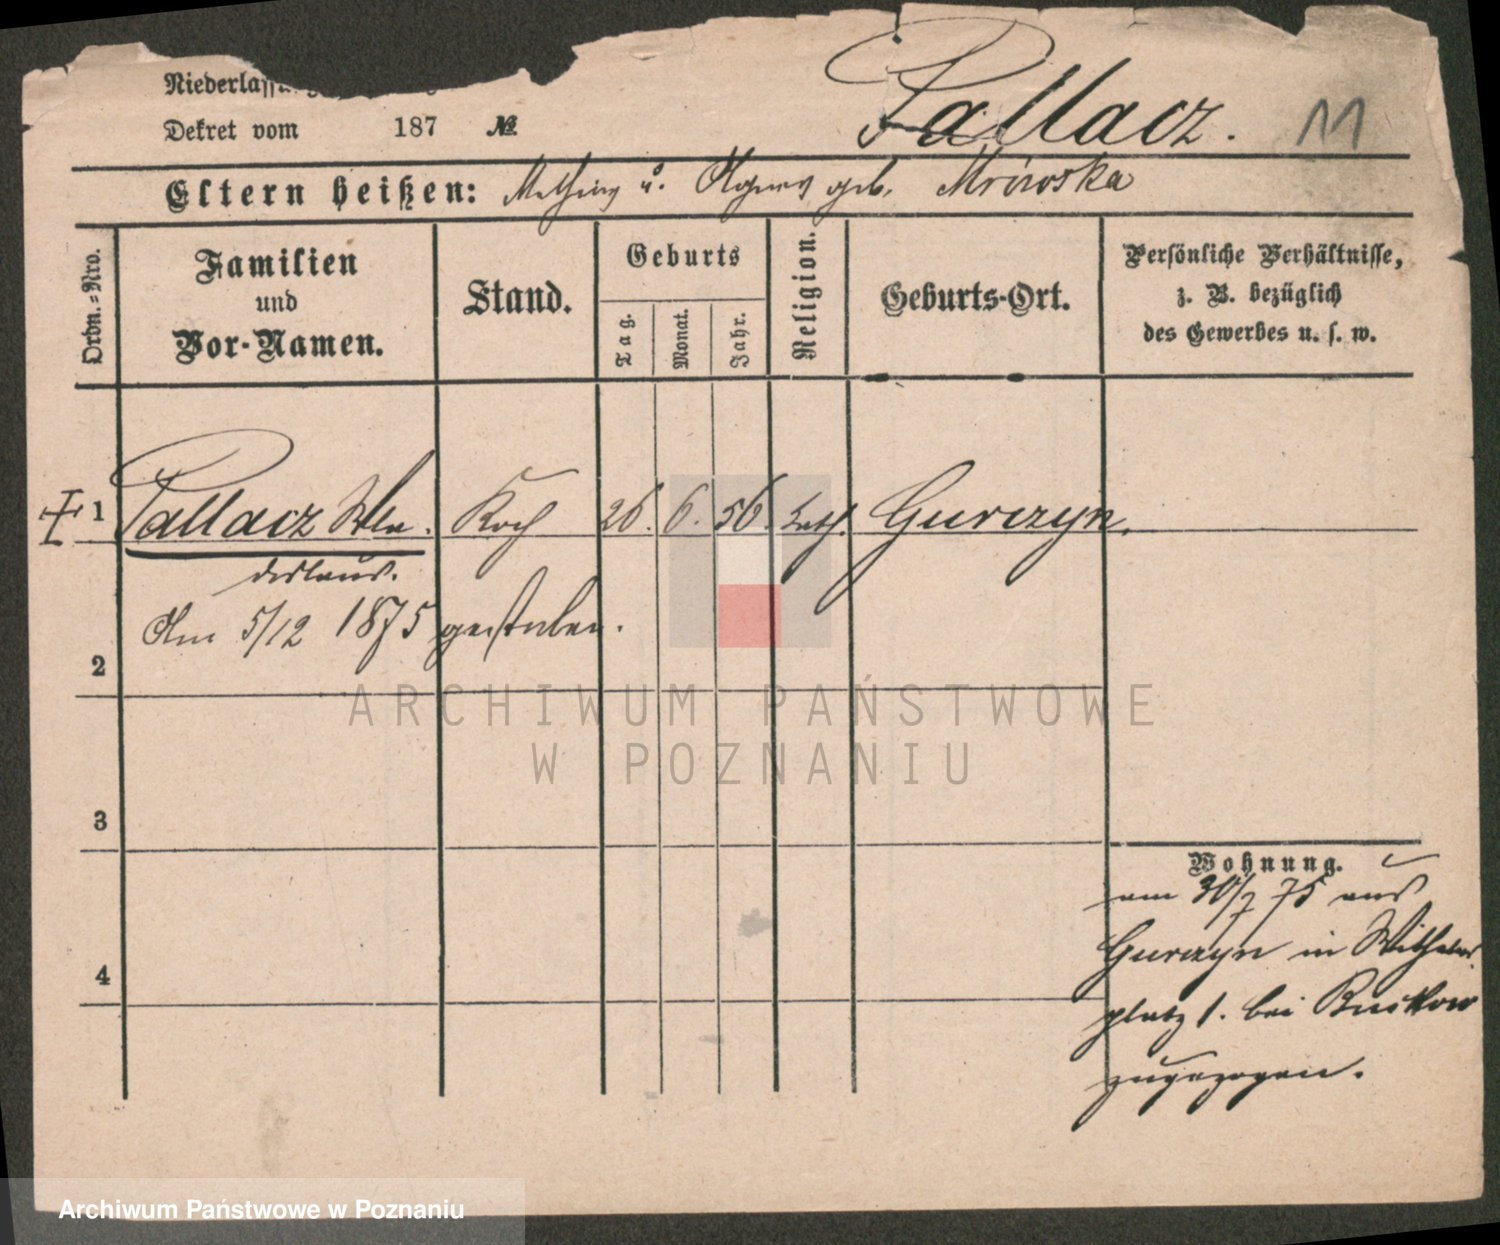 Dekret vom 187 №
Pallacz. 11
Eltern heißen: u. geb. Mrówska
Ordn.=Nro.
Familien
und
Vor-Namen.
Stand.
Geburts
Tag.
Monat.
Jahr.
Religion.
Geburts-Ort.
Persönliche Verhältnisse,
z. B. bezüglich
des Gewerbes u. s. w.
1 Pallacz Wla- Koch 26. 6. 56. kath. Gurczyn.
dislaus.
Am 5/12 1875 gestorben.
2
3
4
Wohnung.
am 30/7 75 aus
Gurczyn in Wilhelms
platz 1. bei
zugezogen.
ARCHIWUM PAŃSTWOWE
W POZNANIU
Archiwum Państwowe w Poznaniu